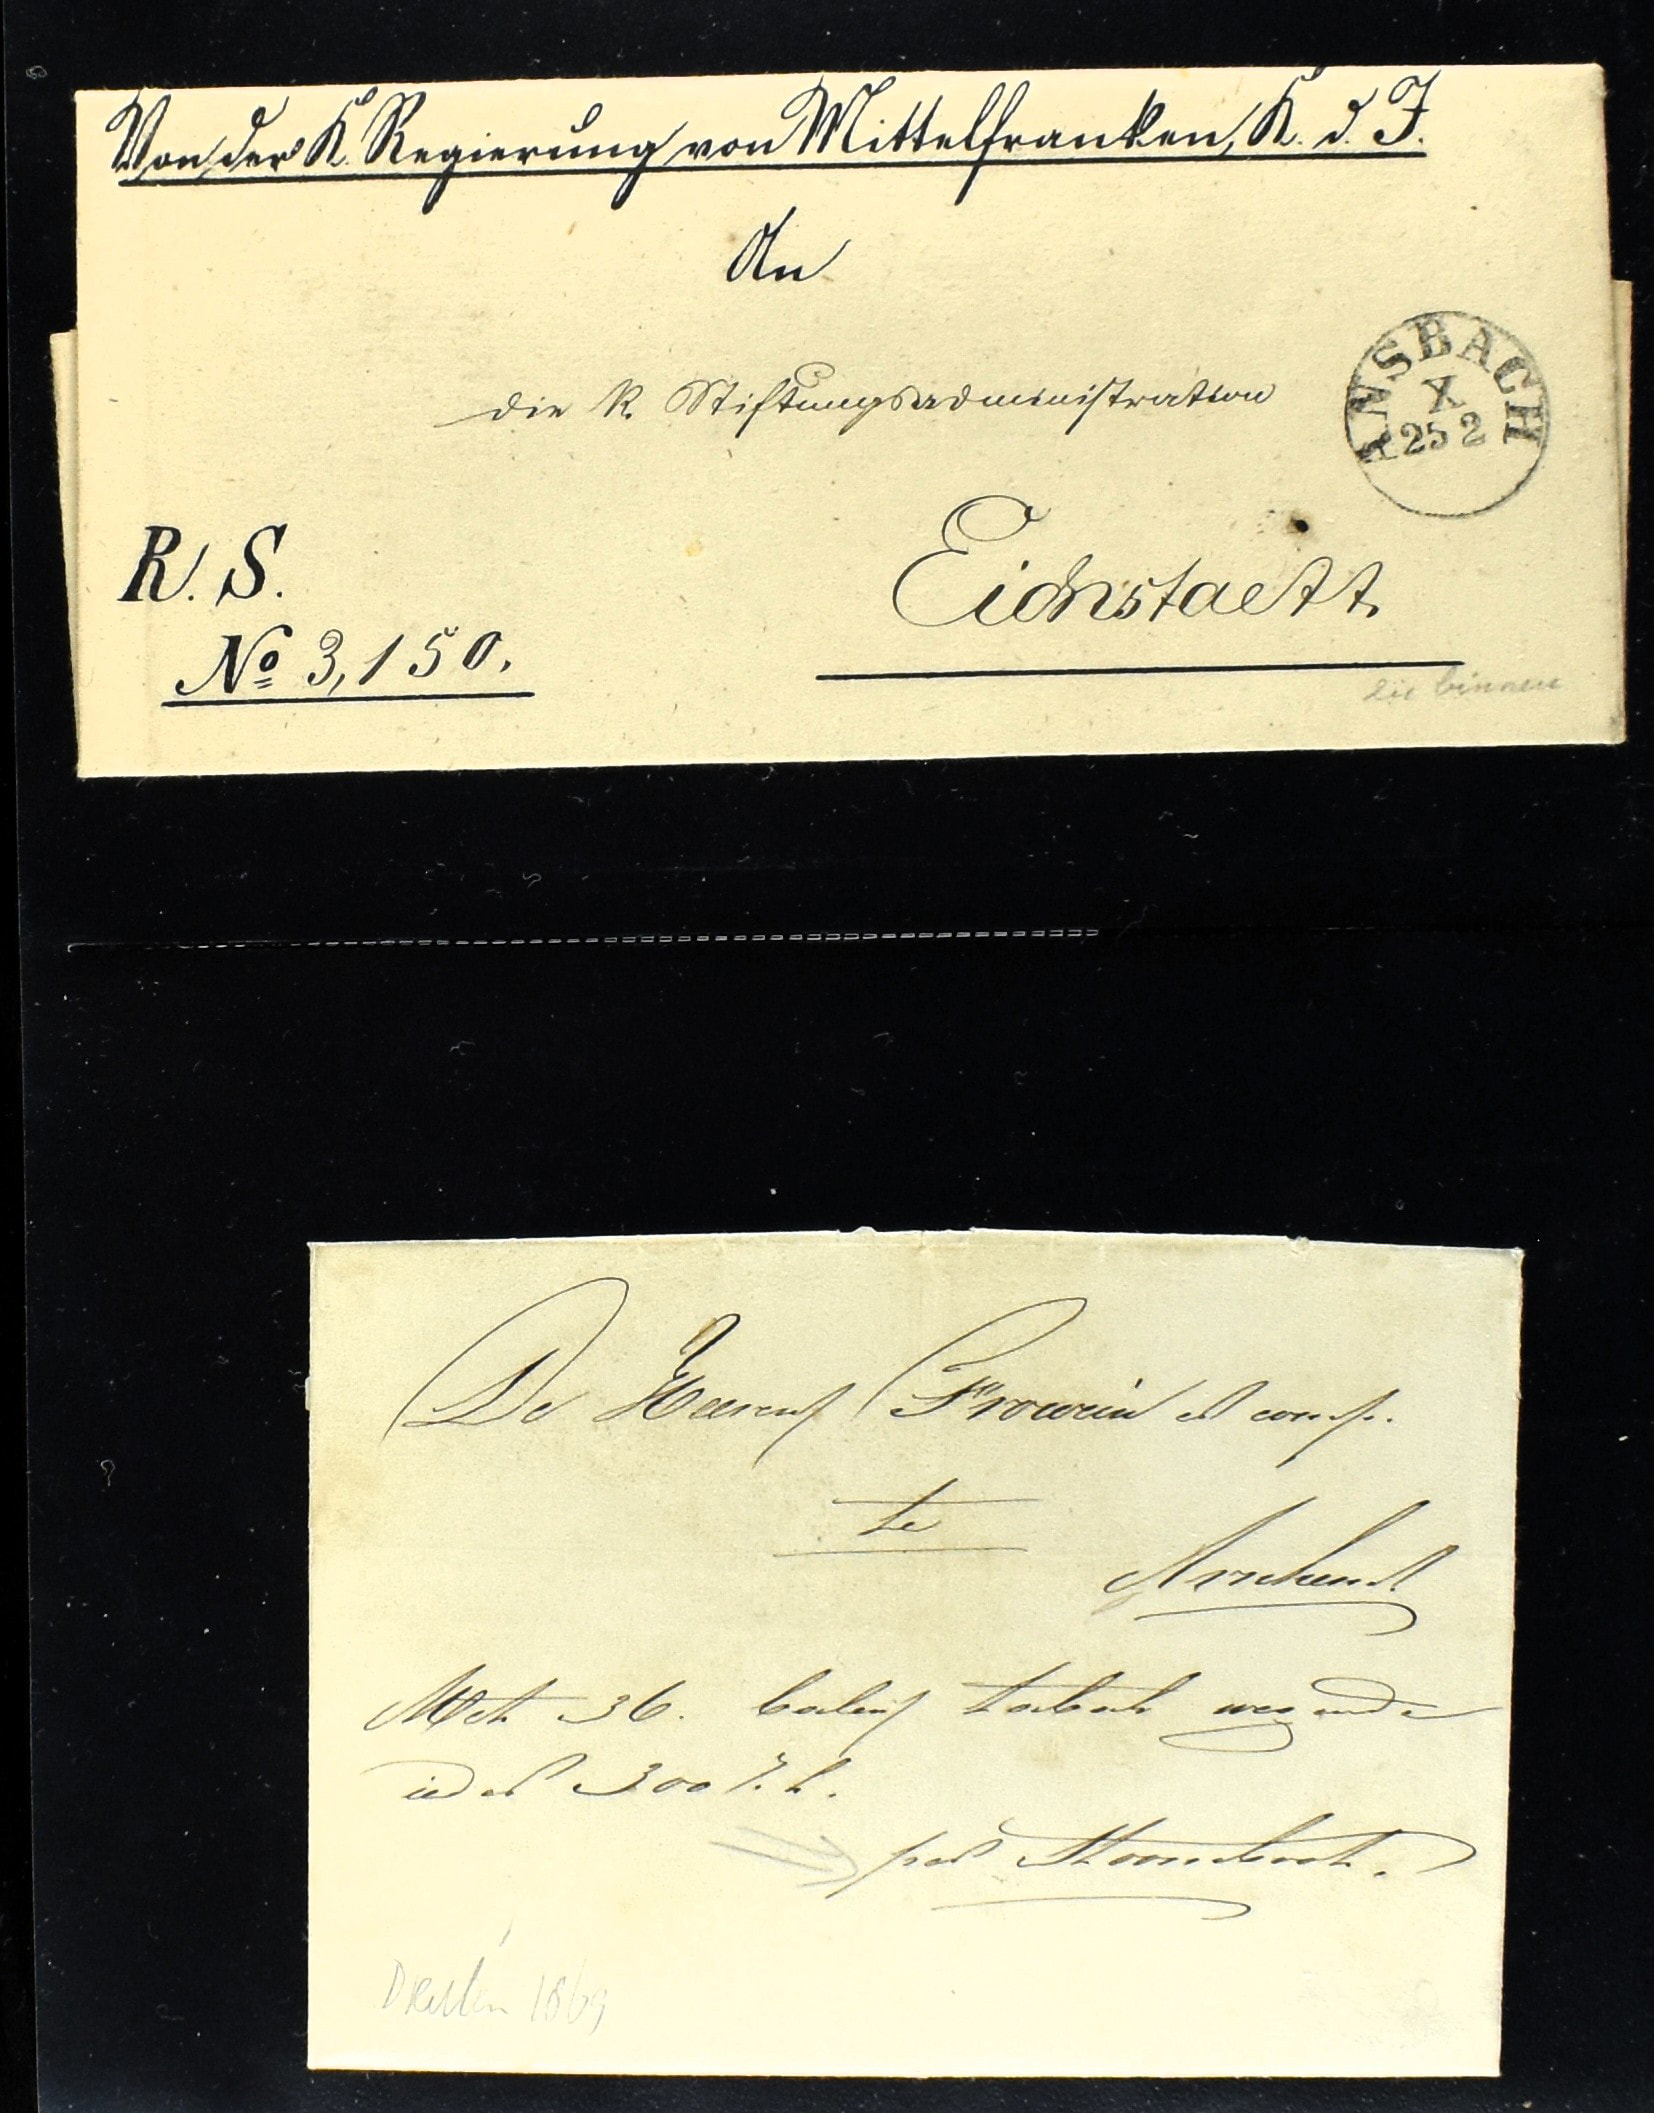 Von der K. Regierung von Mittelfranken, K. d. J.
An
die K. Stiftungsadministration
ANSBACH
X
25 2
Eichstaett
R. S.
No 3,150.
zie binnen
De Heeren Frowein et comp.
te
Arnhem
Met 36. balen tabak wegende
ieder 300 
per Stoomboot.
1869